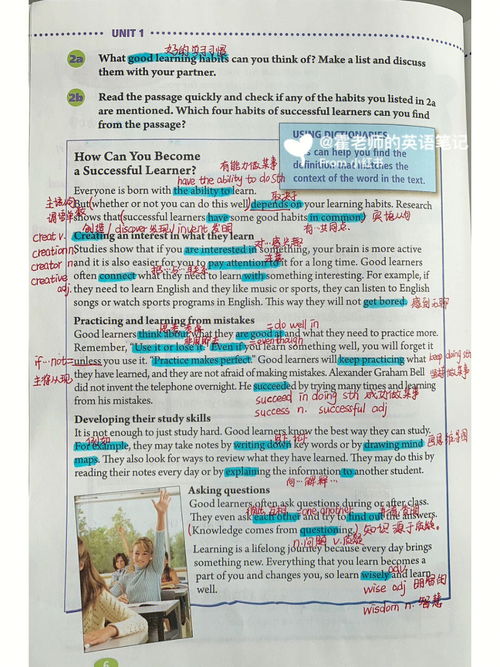 UNIT 1
好的学习习惯
2a What good learning habits can you think of? Make a list and discuss
them with your partner.
2b Read the passage quickly and check if any of the habits you listed in 2a
are mentioned. Which four habits of successful learners can you find
from the passage?
@霍老师的英语笔记
USING DICTIONARIES
can help you find the
definition matches the
context of the word in the text.
How Can You Become
a Successful Learner?
有能力做某事
have the ability to do sth
Everyone is born with the ability to learn.
取决于
But (whether or not you can do this well) depends on your learning habits. Research
shows that (successful learners have some good habits in common.) 宾语从句
创造 / discover发现 / invent 发明
有…共同点
creat v.
Creating an interest in what they learn
对…感兴趣
creation n
Studies show that if you are interested in something, your brain is more active
注意
creator n
and it is also easier for you to pay attention to it for a long time. Good learners
creative
adj.
often connect what they need to learn with something interesting. For example, if
they need to learn English and they like music or sports, they can listen to English
songs or watch sports programs in English. This way they will not get bored. 感到无聊
Practicing and learning from mistakes
= do well in
Good learners think about what they are good at and what they need to practice more.
=even though
Remember, "Use it or lose it." Even if you learn something well, you will forget it
if…not=
unless you use it. "Practice makes perfect." Good learners will keep practicing what
keep doing sth
they have learned, and they are not afraid of making mistakes. Alexander Graham Bell
did not invent the telephone overnight. He succeeded by trying many times and learning
from his mistakes.
succeed in doing sth 成功做某事
success n. successful adj
Developing their study skills
It is not enough to just study hard. Good learners know the best way they can study.
例如
For example, they may take notes by writing down key words or by drawing mind
maps. They also look for ways to review what they have learned. They may do this by
reading their notes every day or by explaining the information to another student.
向…解释…
Asking questions
Good learners often ask questions during or after class.
=one another
They even ask each other and try to find out the answers.
(Knowledge comes from questioning.) 知识源于质疑。
n.问题 v.质疑
Learning is a lifelong journey because every day brings
something new. Everything that you learn becomes a
adv.
part of you and changes you, so learn wisely and learn
well.
wise adj 明智的
wisdom n. 智慧
6